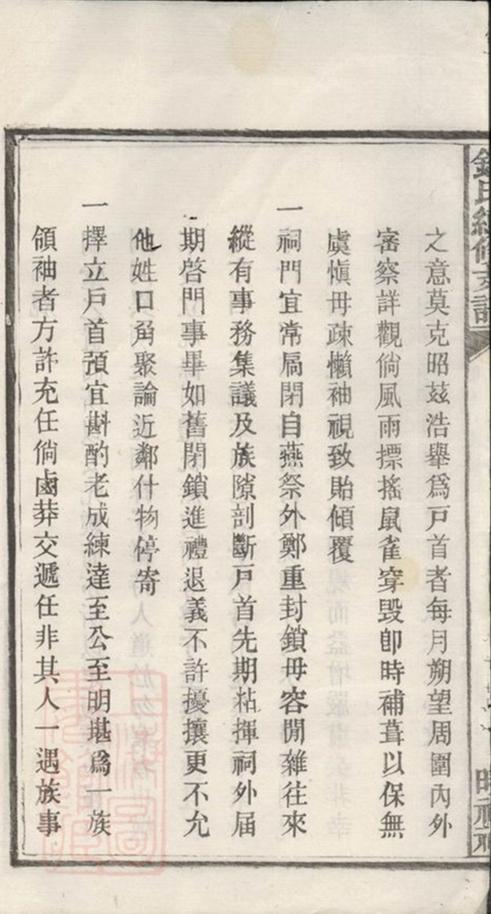 之意莫克昭茲浩舉爲戸首者每月朔望周圍內外
審察詳觀倘風雨摽搖鼠雀穿毁卽時補葺以保無
虞愼毋疎懶袖視致貽傾覆
一祠門宜常扃閉自燕祭外鄭重封鎖毋容閒雜往來
縱有事務集議及族隙剖斷戸首先期粘揮祠外屆
期啓門事畢如舊閉鎖進禮退義不許擾攘更不允
他姓口角聚論近鄰什物停寄
一擇立戸首預宜斟酌老成練達至公至明堪爲一族
領袖者方許充任倘鹵莽交遞任非其人一遇族事